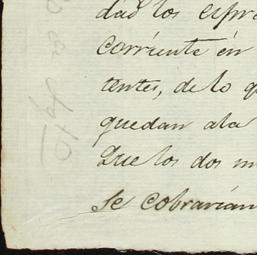 dad los espre
corriente én
tentes, de lo q
quedan ala
Que los dos m
se cobrarian